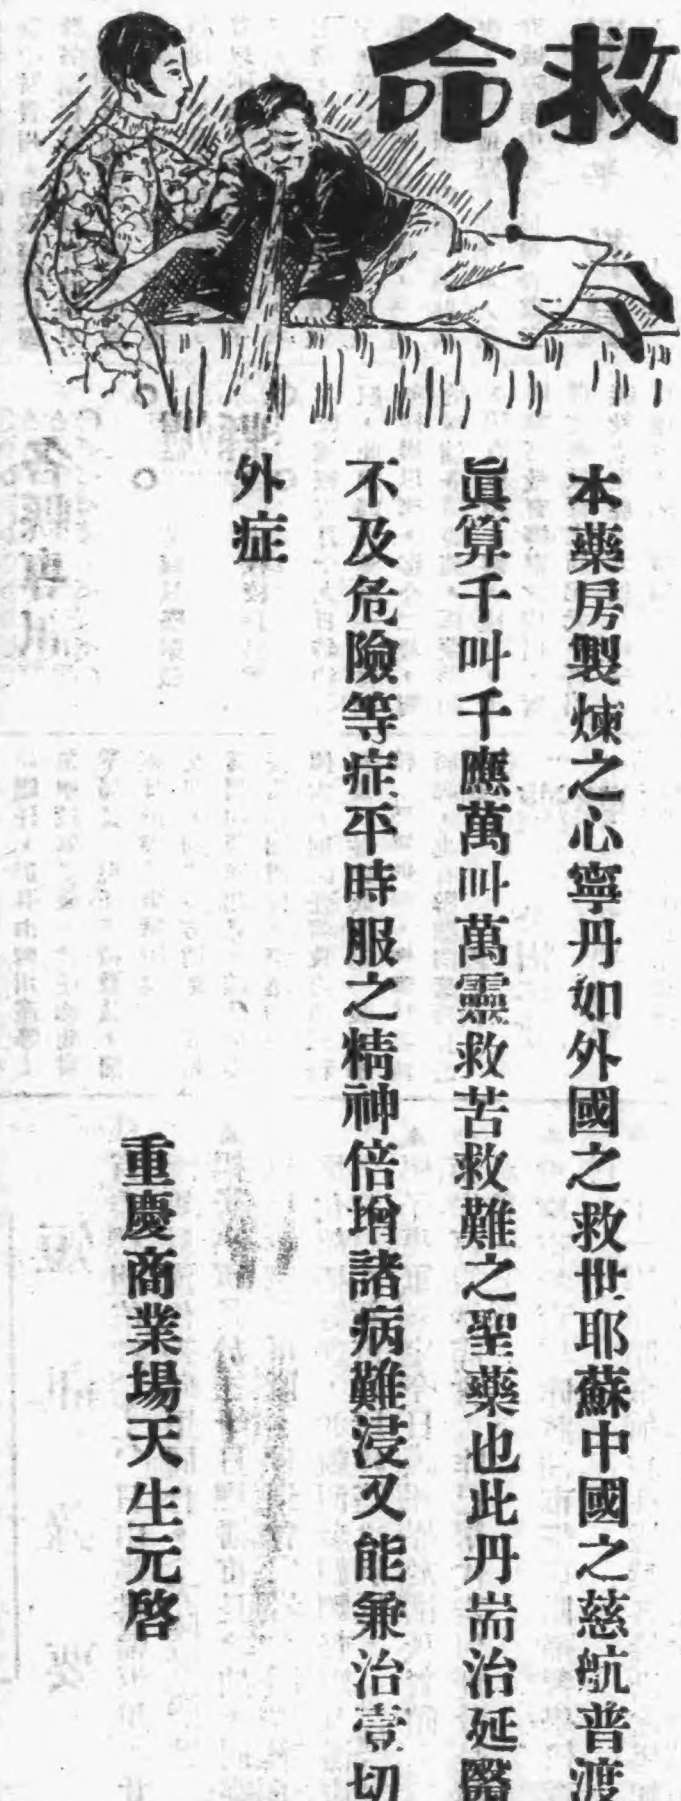 救命！
本藥房製煉之心寧丹如外國之救世耶蘇中國之慈航普渡
眞算千叫千應萬叫萬靈救苦救難之聖藥也此丹耑治延醫
不及危險等症平時服之精神倍增諸病難浸又能兼治壹切
外症
重慶商業場天生元啓